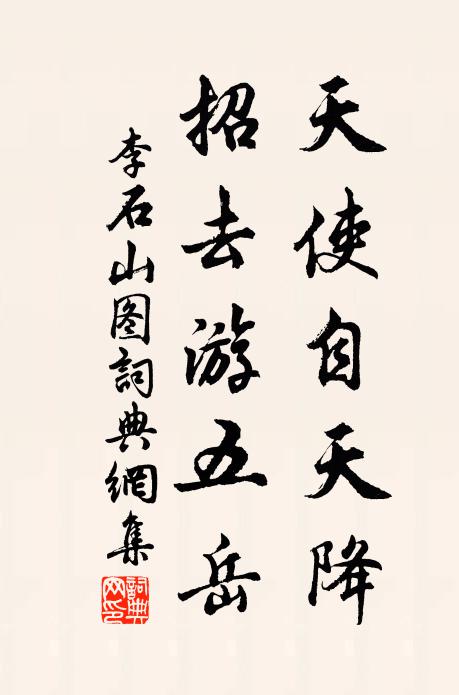 天使自天降
招去游五岳
李石山图詞典網集
詞典网印